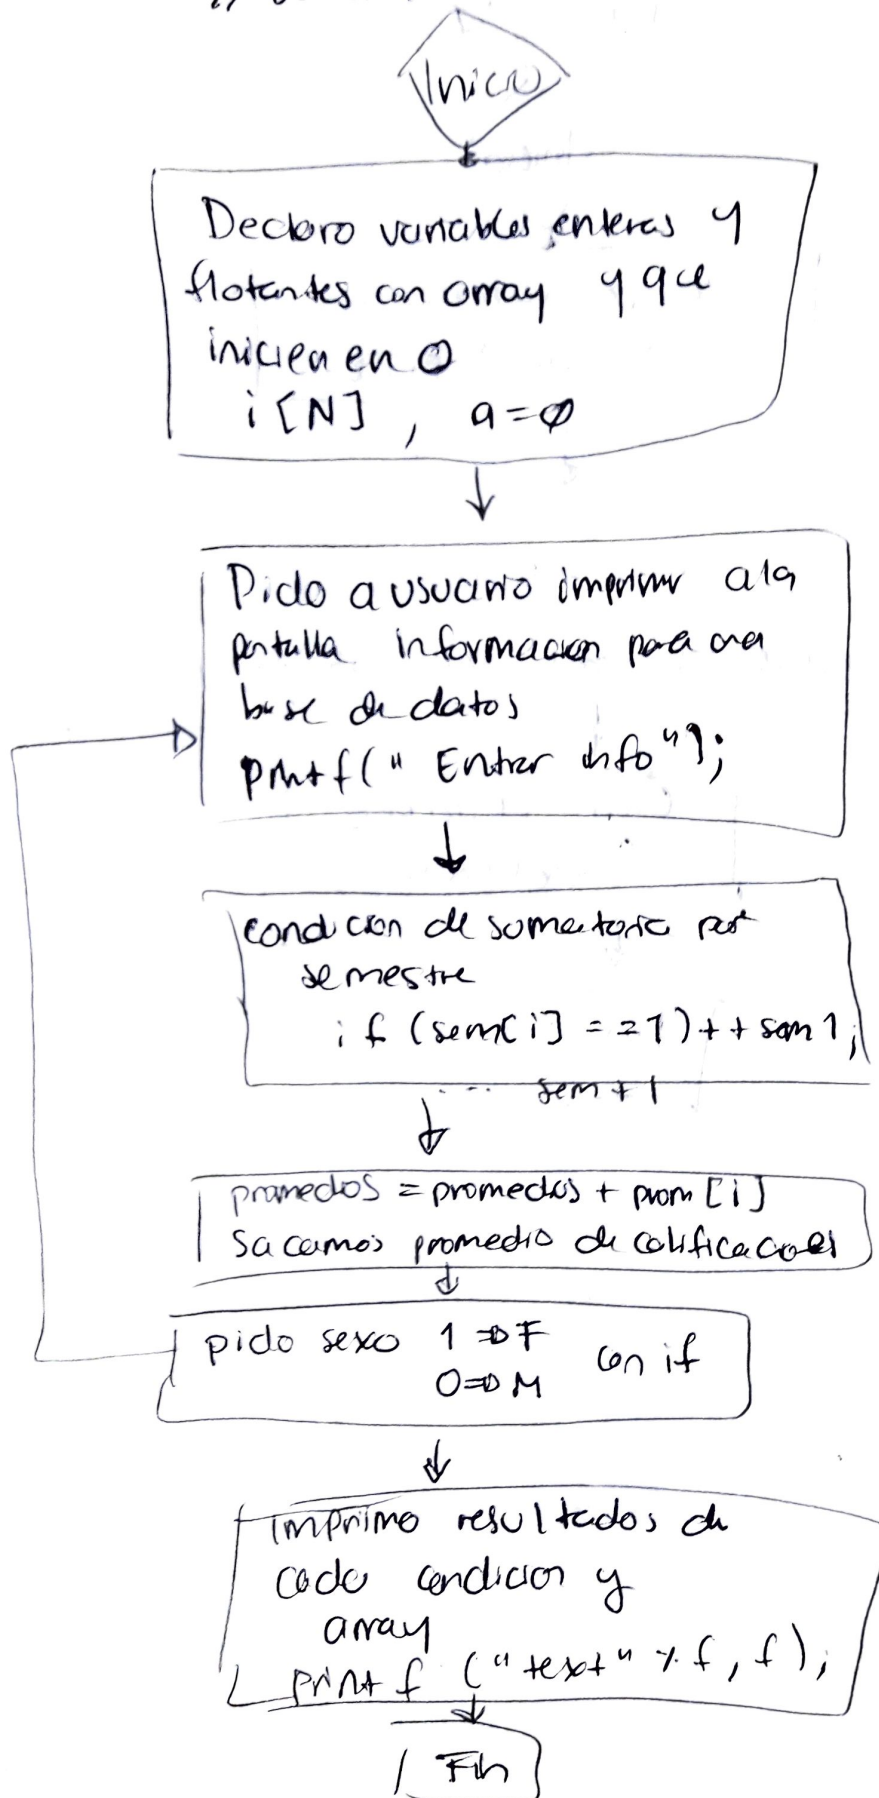 Inicio
Declaro variables enteras y
flotantes con array y que
inicien en 0
i [N] , a=0
Pido a usuario imprimir a la
pantalla informacion para crea
base de datos
printf(" Entrar info");
condicion de sumatoria por
semestre
if (sem[i] == 1) ++ sem 1;
.... sem + 1
promedios = promedios + prom [i]
Sacamos promedio de calificaciones
pido sexo 1 => F con if
0 => M
imprimo resultados de
cada condicion y
array
printf ("text" %f, f);
Fin